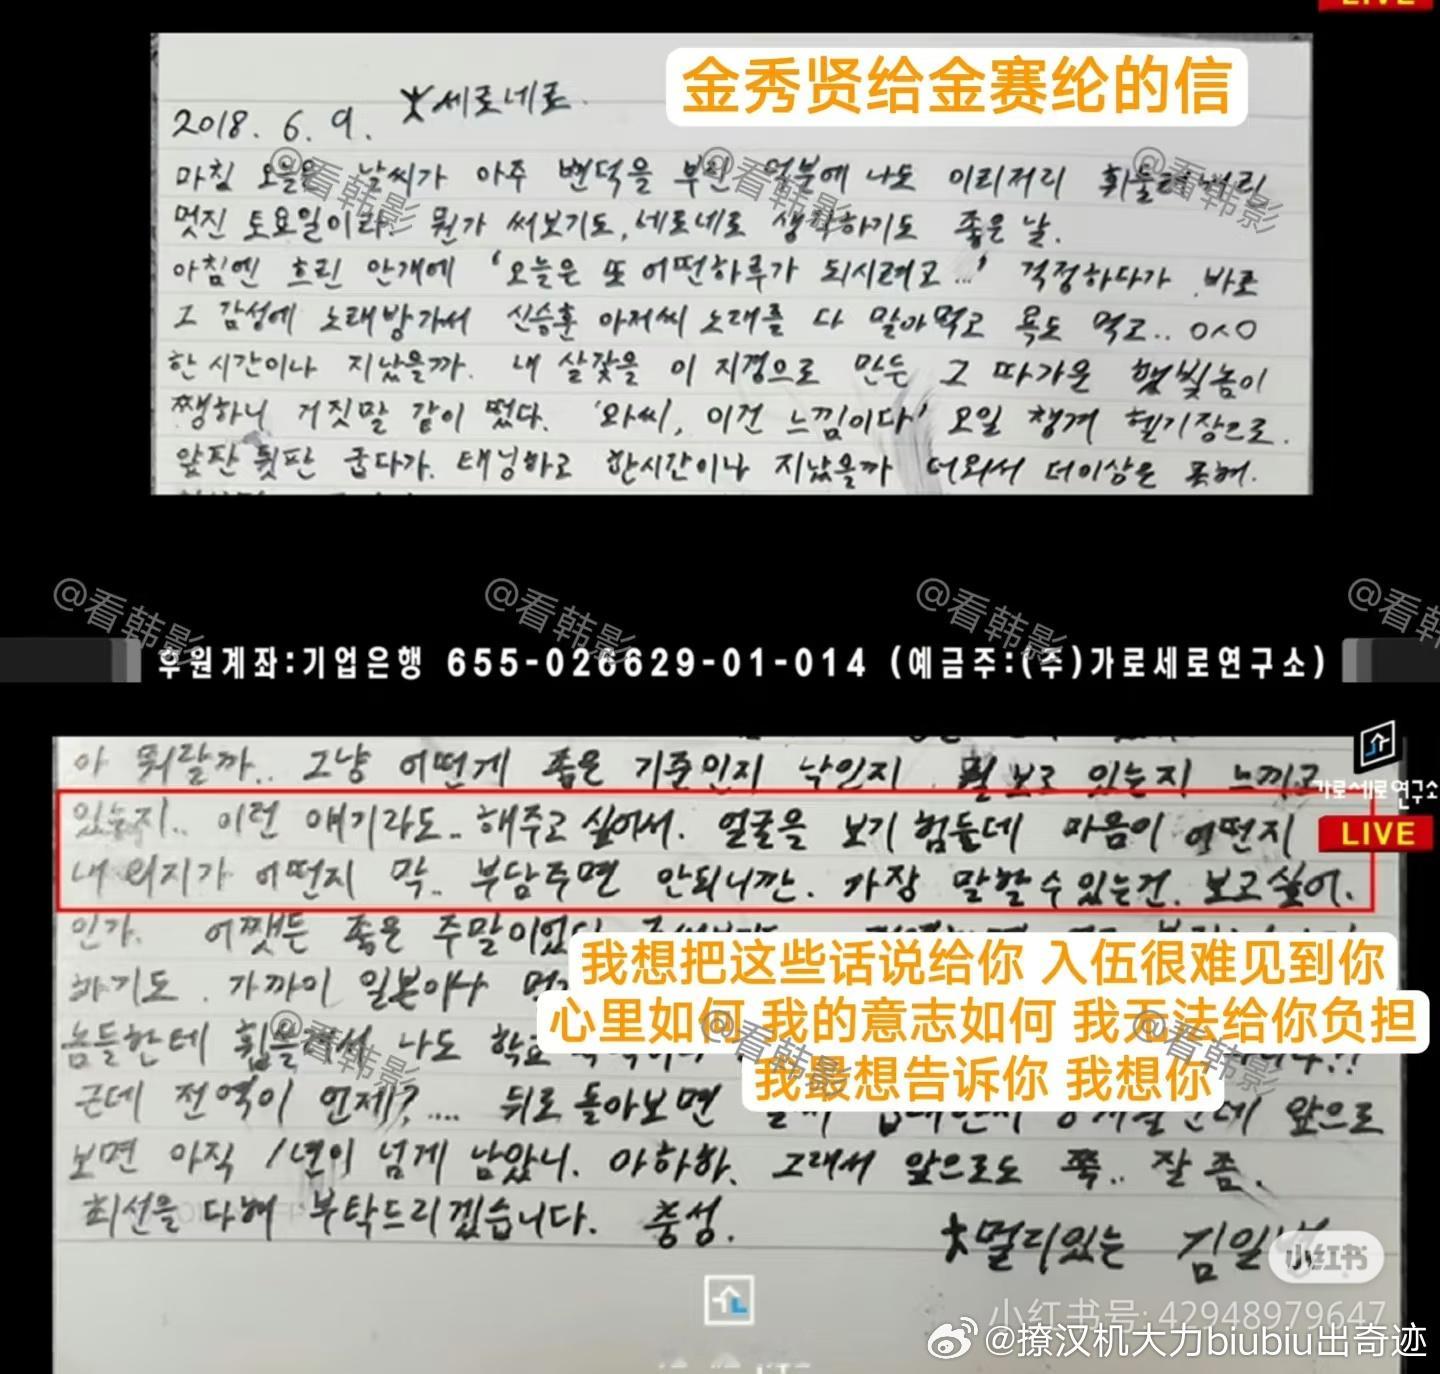 LIVE
金秀贤给金赛纶的信
2018. 6. 9. 세로네로.
마침 오늘은 날씨가 아주 변덕을 부린 덕분에 나도 이리저리
멋진 토요일이라. 뭔가 써보기도, 세로네로 생각하기도 좋은 날.
아침엔 흐린 안개에 '오늘은 또 어떤하루가 되시려고...' 걱정하다가 바로
그 감성에 노래방가서 신승훈 아저씨 노래를 다 말아먹고 욕도 먹고.. ㅇㅅㅇ
한시간이나 지났을까. 내 살갗을 이 지경으로 만든 그 따가운 햇빛놈이
쨍하니 거짓말 같이 떴다. '와씨, 이건 느낌이다' 오일 챙겨 헬기장으로.
앞판 뒷판 굽다가. 태닝하고 한시간이나 지났을까 더와서 더이상은 못해.
@看韩影 @看韩影 @看韩影
@看韩影 @看韩影 @看韩影 @看韩影
후원계좌:기업은행 655-026629-01-014 (예금주:(주)가로세로연구소)
아 뭐랄까.. 그냥 어떤게 좋은 기준인지 낙인지 뭘 보고 있는지 느끼고
가로세로연구소
있는지.. 이런 얘기라도.. 해주고 싶어서. 얼굴을 보기 힘들데 마음이 어떤지
LIVE
내 의지가 어떤지 막.. 부담주면 안되니깐. 가장 말할수있는건. 보고싶어.
인가. 어쨋든 좋은 주말이었다
我想把这些话说给你 入伍很难见到你
하기도. 가까이 일본이나
心里如何 我的意志如何 我无法给你负担
놈들한테 나도
@看韩影 @看韩影 @看韩影
我最想告诉你 我想你
근데 전역이 언제?.... 뒤로돌아보면 앞으로
보면 아직 1년이 넘게 남았니. 아하하. 그래서 앞으로도 쭉.. 잘 좀.
최선을 다해 부탁드리겠습니다. 충성.
멀디있는 김일
小红书
小红书号: 42948979647
@撩汉机大力biubiu出奇迹